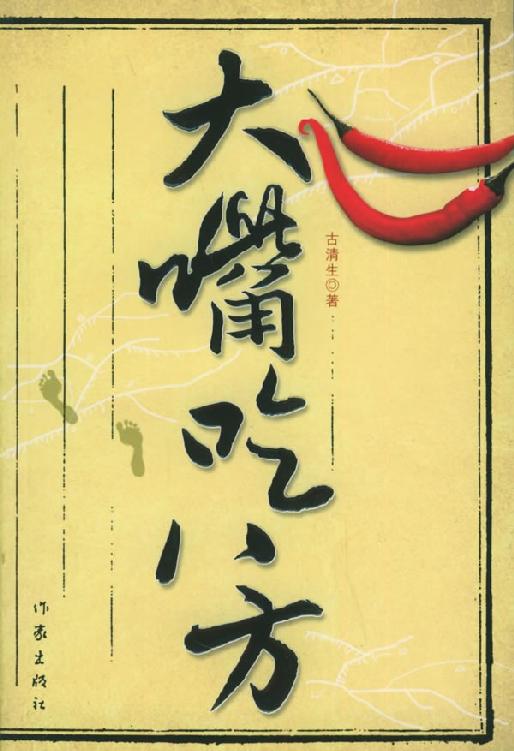 大嘴吃八方
古清生◎著
作家出版社